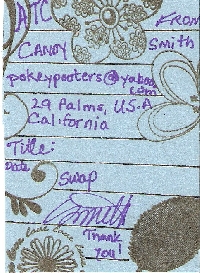 ATC FROM
CANDY Smith
pokeypooters@yahoo
.com
29 Palms, U.S.A
California
Title:
Date
Swap
Smith
Thank
you!